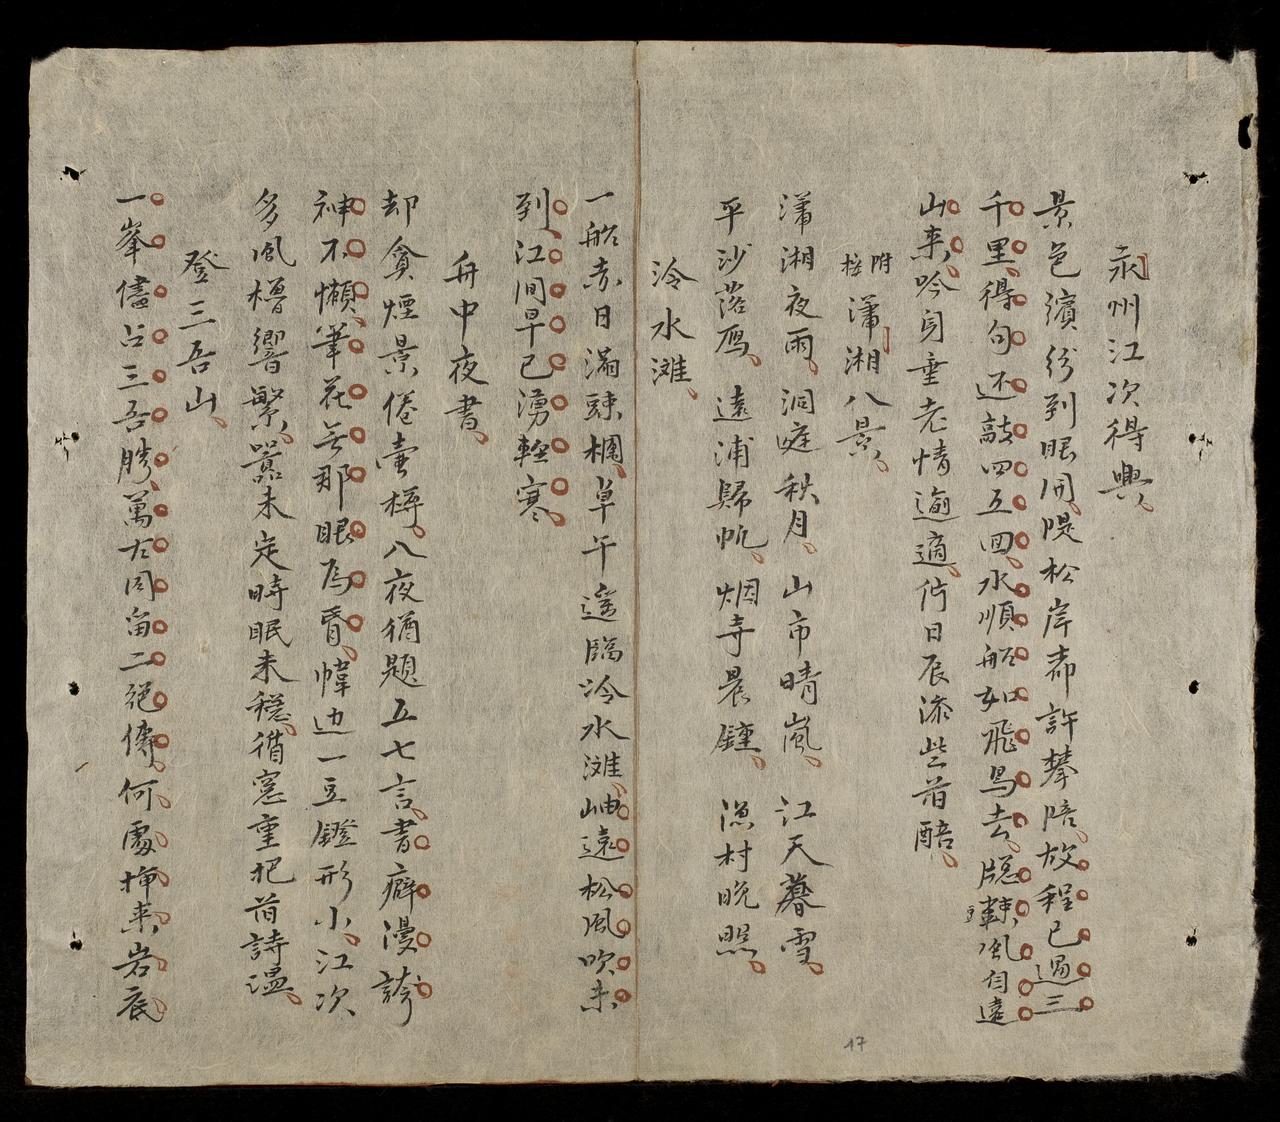 永州江次得興
景色濱紛到眼開隄松岸芾許攀陪放程已過三
千里得句还敲四五回水順船如飛鳥去窓風自遠
山来吟身垂老情逾適佇日辰添些首醅
附按瀟湘八景
瀟湘夜雨洞庭秋月山市晴嵐江天暮雪
平沙落鴈遠浦歸帆烟寺晨鐘漁村晚照
冷水灘
一船赤日滿踈欄卓午遥臨冷水灘岫遠松風吹未
到江间早已湧輕寒
舟中夜書
却貪煙景倦壷樽八夜猶題五七言書癖漫誇
神不懶筆花無那眼為昏幃边一豆鐙形小江次
多風櫓響繁囂未定時眠未穏循窓重把旧詩温
登三吾山
一峯儘占三吾勝萬古同留二絕傳何處揷来岩底
17